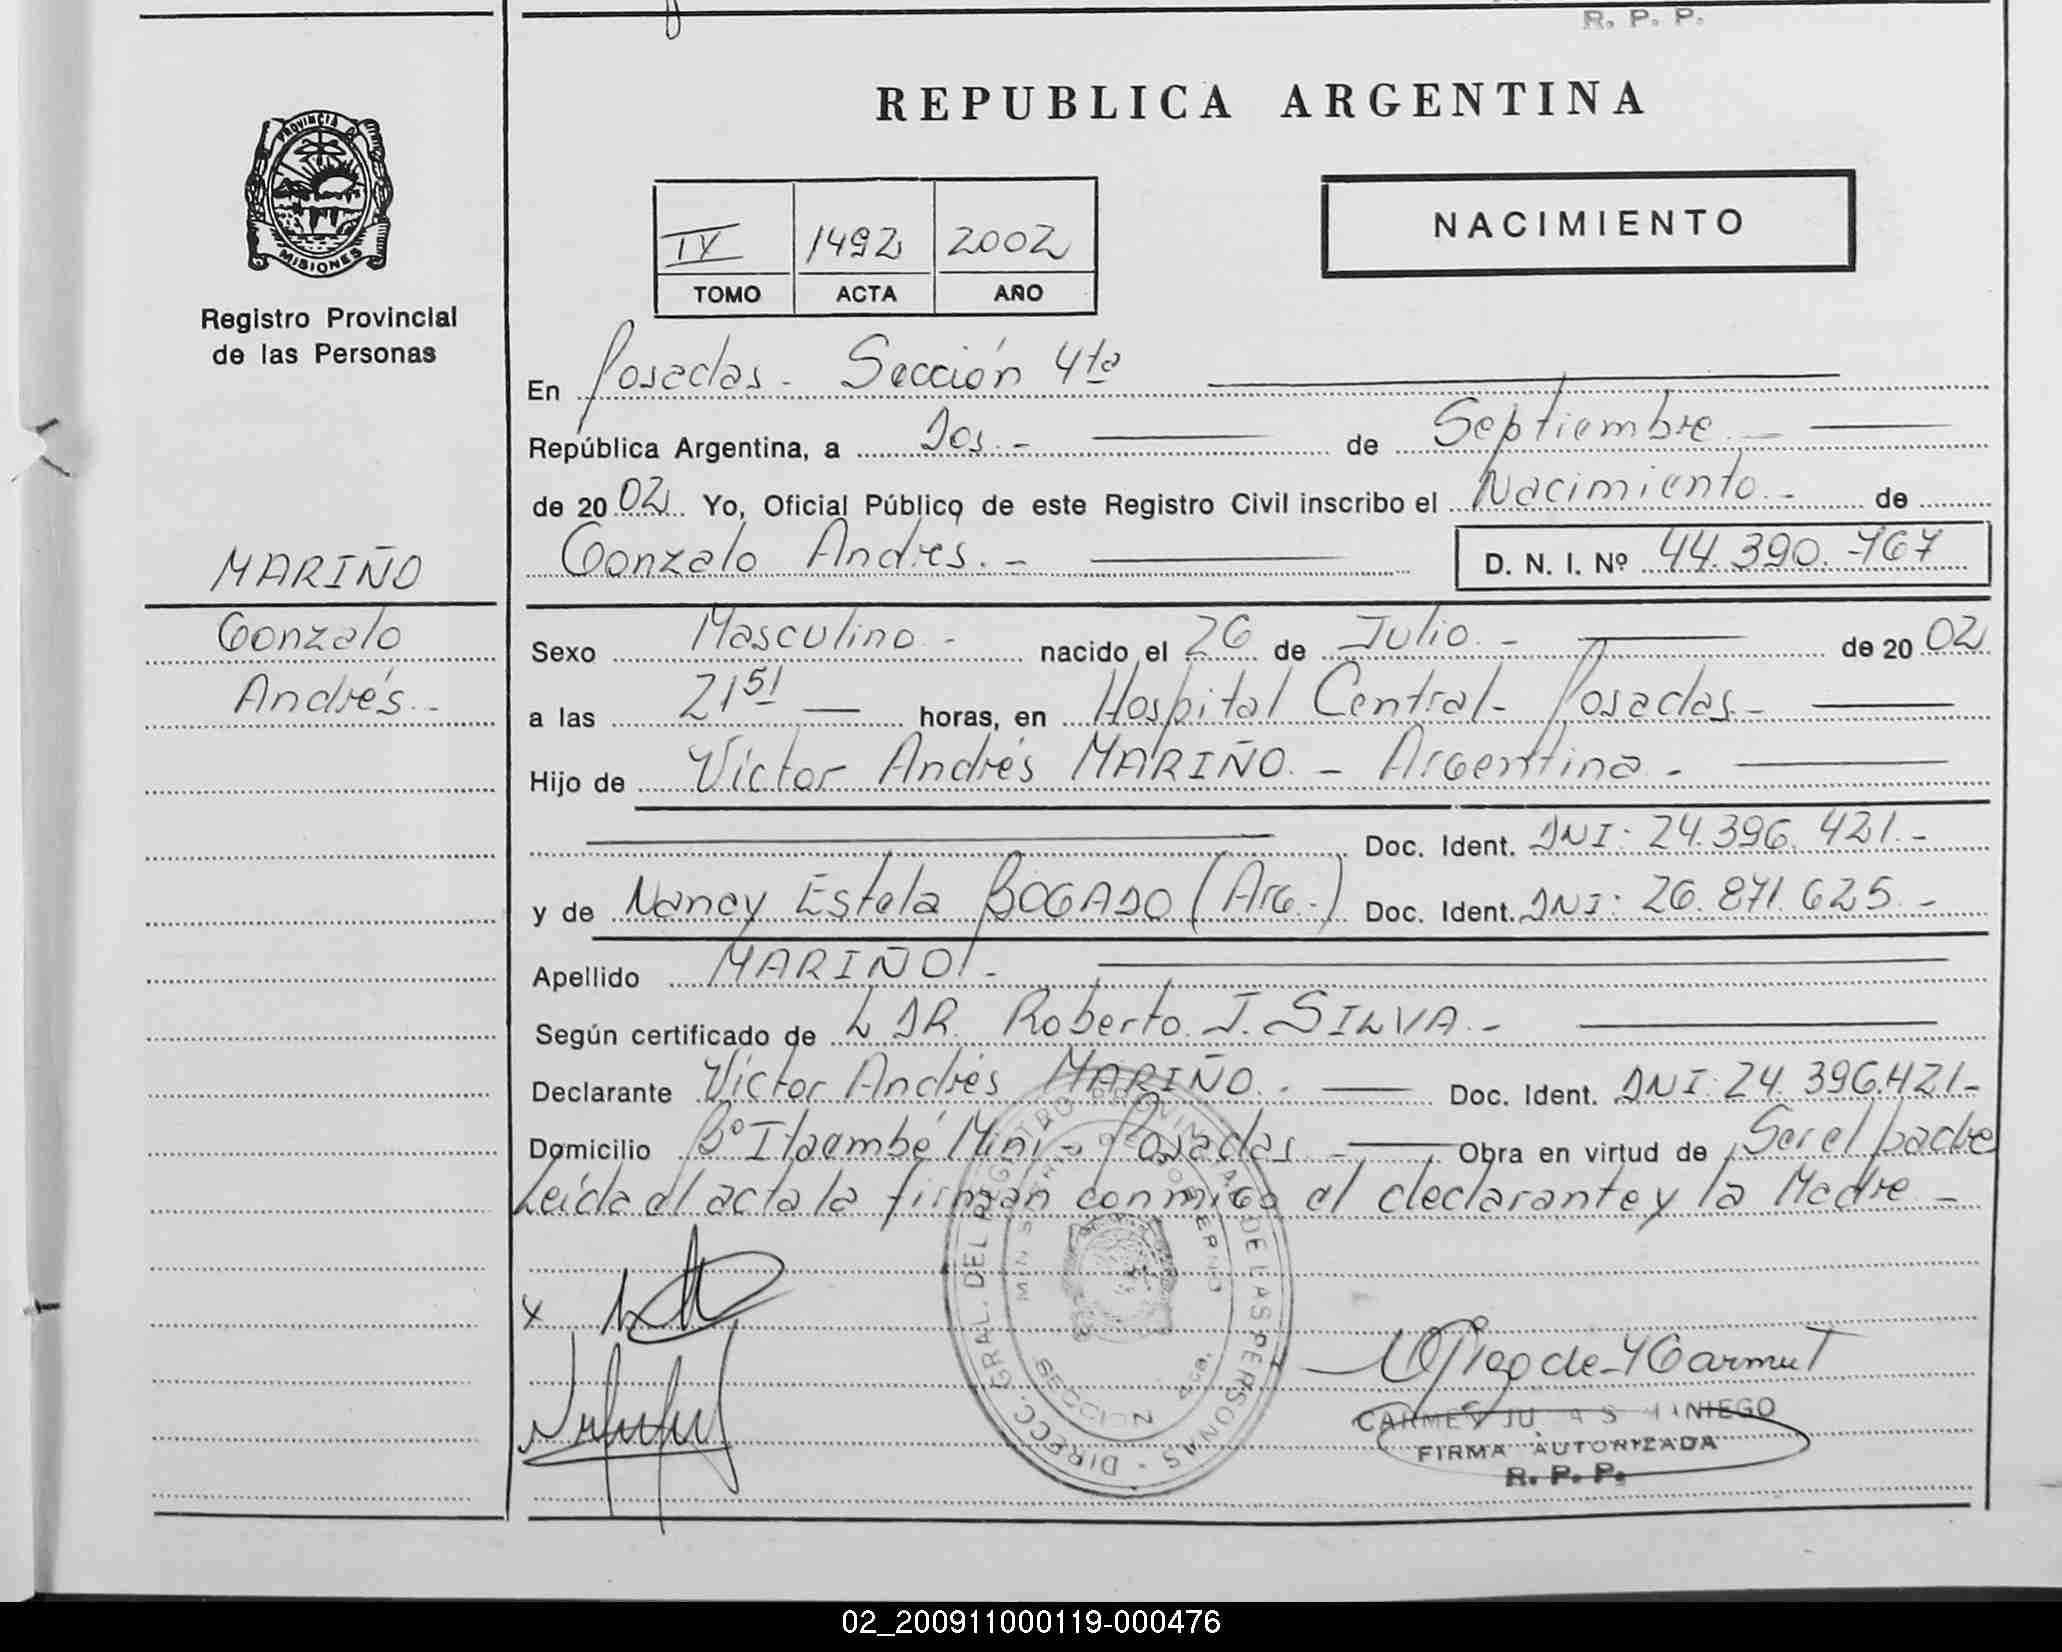 R. P. P.
REPUBLICA ARGENTINA
PROVINCIA DE
MISIONES
Registro Provincial
de las Personas
IV 1492 2002
TOMO ACTA AÑO
NACIMIENTO
En Posadas - Sección 4ta
República Argentina, a Dos.- de Septiembre.-
de 20 02 Yo, Oficial Público de este Registro Civil inscribo el Nacimiento.- de
Gonzalo Andrés.- D. N. I. Nº 44.390.767
MARIÑO
Gonzalo
Andrés.-
Sexo Masculino.- nacido el 26 de Julio.- de 20 02
a las 21 51 horas, en Hospital Central - Posadas-
Hijo de Víctor Andrés MARIÑO.- Argentina.-
Doc. Ident. DNI: 24.396.421.-
y de Nancy Estela BOGADO (Arg.-) Doc. Ident. DNI: 26.871.625.-
Apellido MARIÑO.-
Según certificado de L DR. Roberto J. SILVA.-
Declarante Víctor Andrés MARIÑO.- Doc. Ident. DNI: 24.396.421-
Domicilio Bº Itaembé Miní - Posadas - Obra en virtud de Ser el padre
Leída el acta la firman conmigo el declarante y la Madre -
DIRECC. GRAL. DEL REGISTRO PROVINCIAL DE LAS PERSONAS
MINISTERIO DE GOBIERNO
SECCION
x
CARMEN
FIRMA AUTORIZADA
R. P. P.
02_200911000119-000476